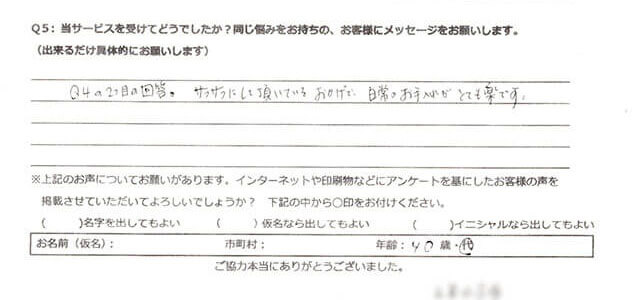 Q5：当サービスを受けてどうでしたか？同じ悩みをお持ちの、お客様にメッセージをお願いします。
（出来るだけ具体的にお願いします）
Q4の2つ目の回答。サラサラにして頂いているおかげで、日常のお手入れがとても楽です。
※上記のお声についてお願いがあります。インターネットや印刷物などにアンケートを基にしたお客様の声を
掲載させていただいてよろしいでしょうか？　下記の中から〇印をお付けください。
（　　）名字を出してもよい　　（　　）仮名なら出してもよい　　（　　）イニシャルなら出してもよい
お名前（仮名）：　　市町村：　　年齢：40 歳・代
ご協力本当にありがとうございました。